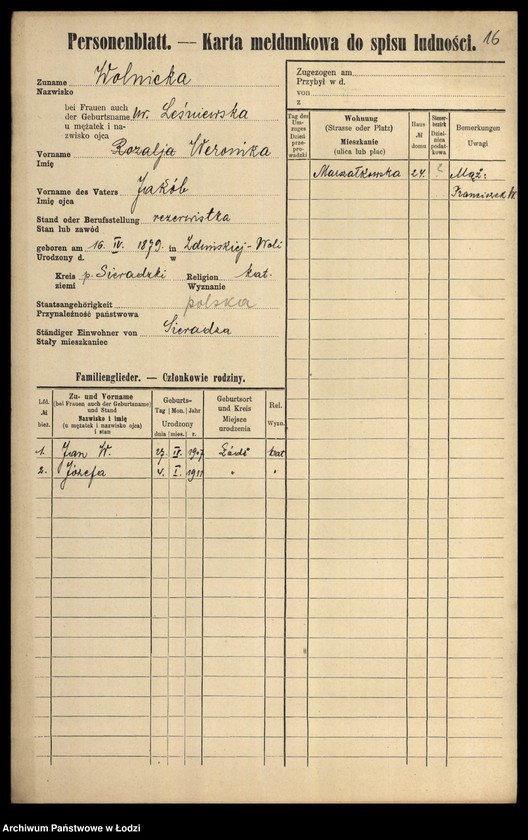 Personenblatt. — Karta meldunkowa do spisu ludności. 16
Zuname Wolnicka
Nazwisko
bei Frauen auch
der Geburtsname ur. Leśniewska
u mężatek i na-
zwisko ojca
Vorname Rozalja Weronika
Imię
Vorname des Vaters Jakób
Imię ojca
Stand oder Berufsstellung rezerwistka
Stan lub zawód
geboren am 16. IV. 1879. in Zduńskiej-Woli
Urodzony d. w
Kreis p. Sieradzki Religion kat.
ziemi Wyznanie
Staatsangehörigkeit polska
Przynależność państwowa
Ständiger Einwohner von Sieradza
Stały mieszkaniec
Zugezogen am
Przybył w d.
von
z
Tag des Um-zuges Dzień prze-prowadzki
Wohnung (Strasse oder Platz) Mieszkanie (ulica lub plac)
Haus № domu
Steuer-bezirk Dzielnica podat-kowa
Bemerkungen Uwagi
Marszałkowska 24. Mąż:
Franciszek W.
Familienglieder. — Członkowie rodziny.
Lfd. № bież.
Zu- und Vorname (bei Frauen auch der Geburtsname) und Stand Nazwisko i imię (u mężatek i nazwisko ojca) i stan
Geburts- Tag Mon. Jahr Urodzony dnia mies. r.
Geburtsort und Kreis Miejsce urodzenia
Rel. Wyzn.
1. Jan W. 27. IV. 1907 Łódź kat
2. Józefa 4. I. 1911 " "
Archiwum Państwowe w Łodzi